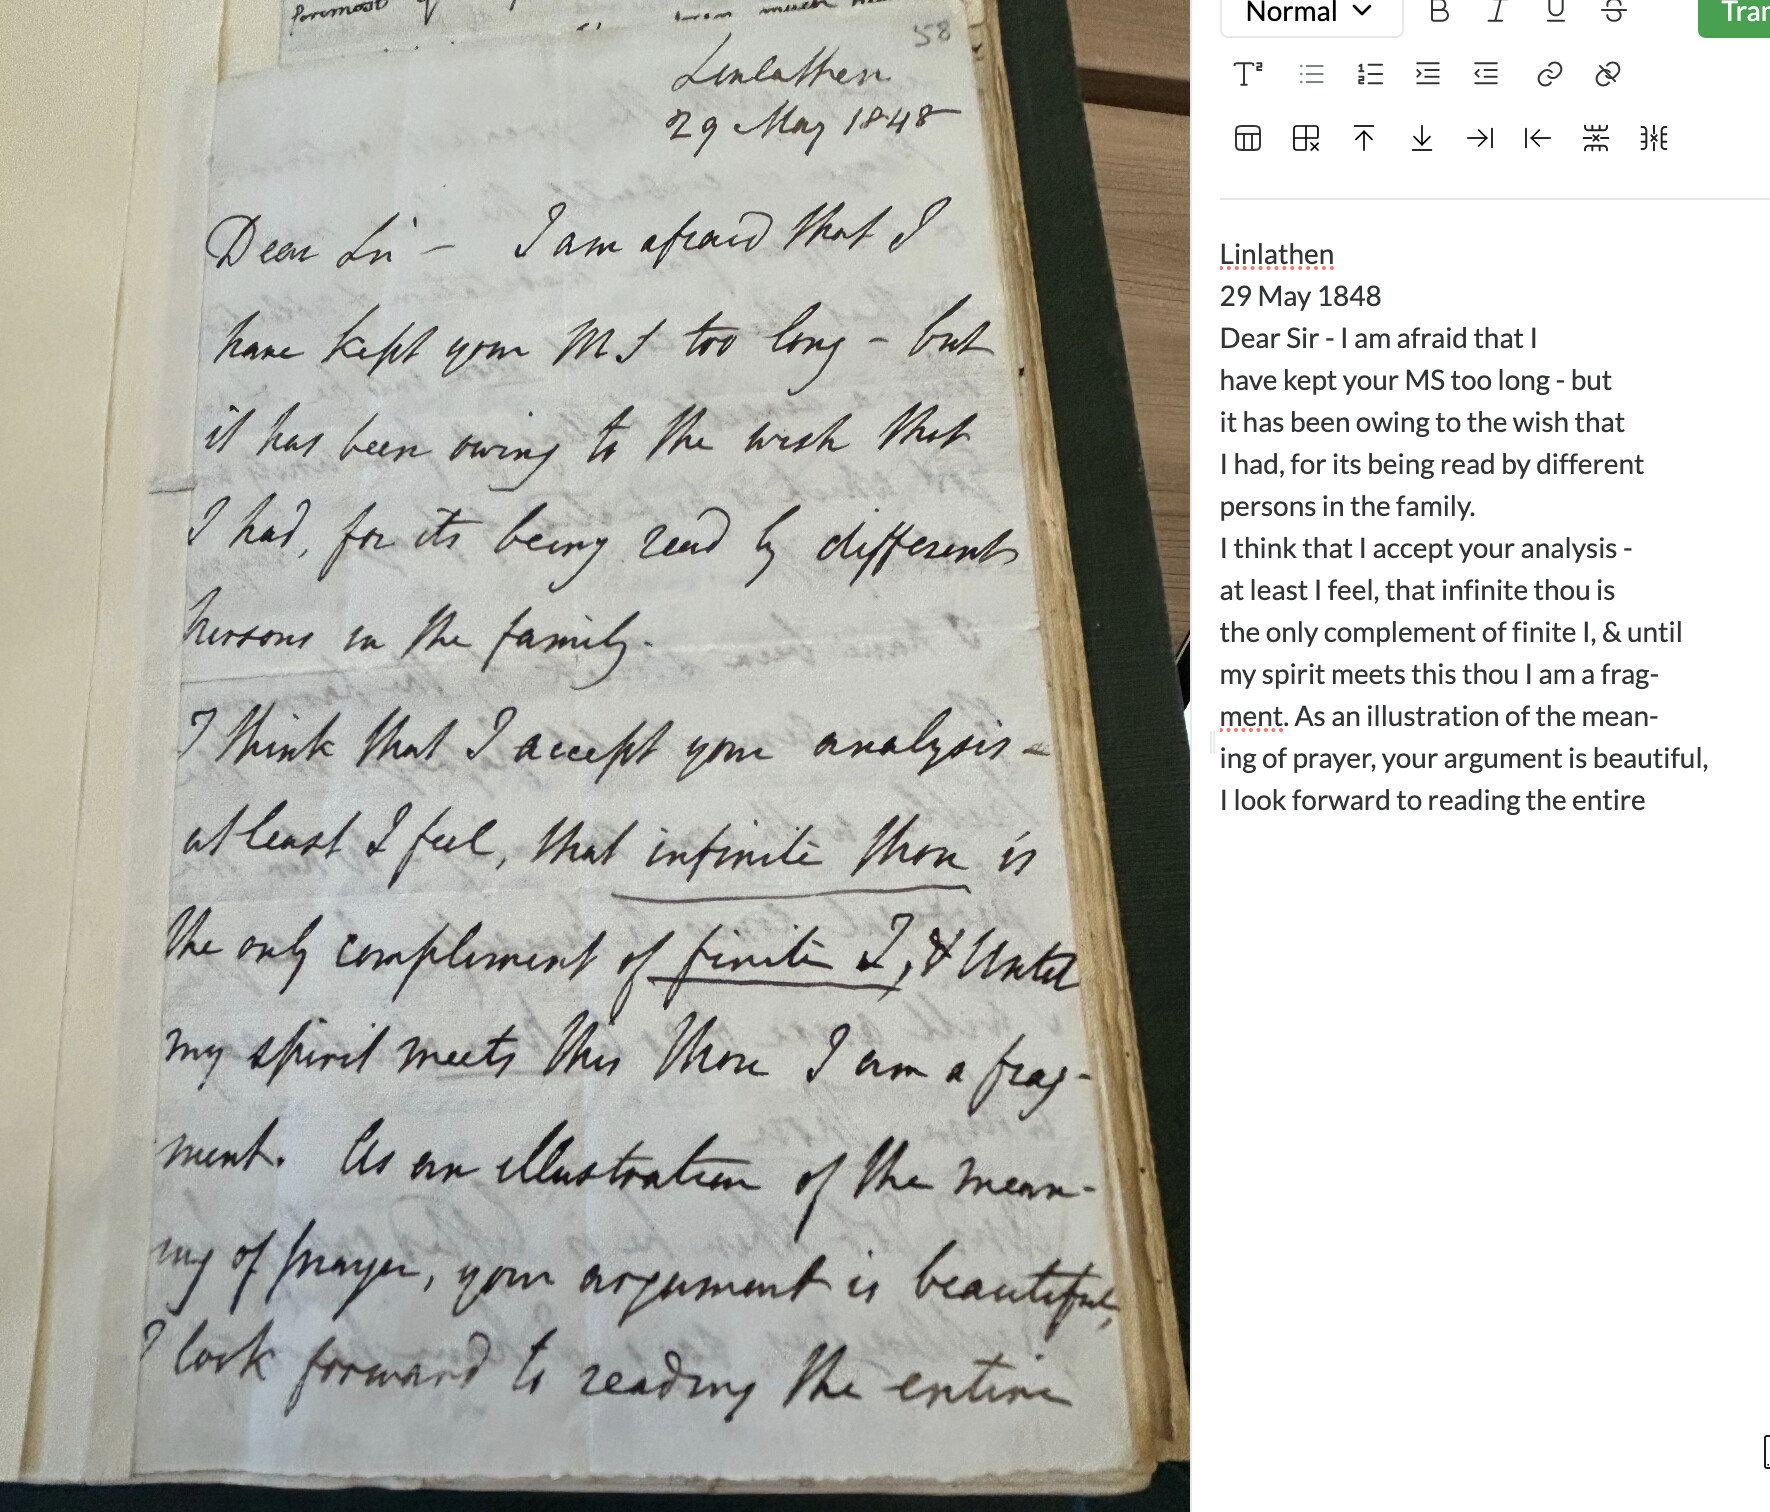 foremost of
much
58
Linlathen
29 May 1848
Dear Sir - I am afraid that I
have kept your MS too long - but
it has been owing to the wish that
I had, for its being read by different
persons in the family.
I think that I accept your analysis -
at least I feel, that infinite thou is
the only complement of finite I, & until
my spirit meets this thou I am a frag-
ment. As an illustration of the mean-
ing of prayer, your argument is beautiful,
I look forward to reading the entire
Normal B I U S Tran
T²
Linlathen
29 May 1848
Dear Sir - I am afraid that I
have kept your MS too long - but
it has been owing to the wish that
I had, for its being read by different
persons in the family.
I think that I accept your analysis -
at least I feel, that infinite thou is
the only complement of finite I, & until
my spirit meets this thou I am a frag-
ment. As an illustration of the mean-
ing of prayer, your argument is beautiful,
I look forward to reading the entire